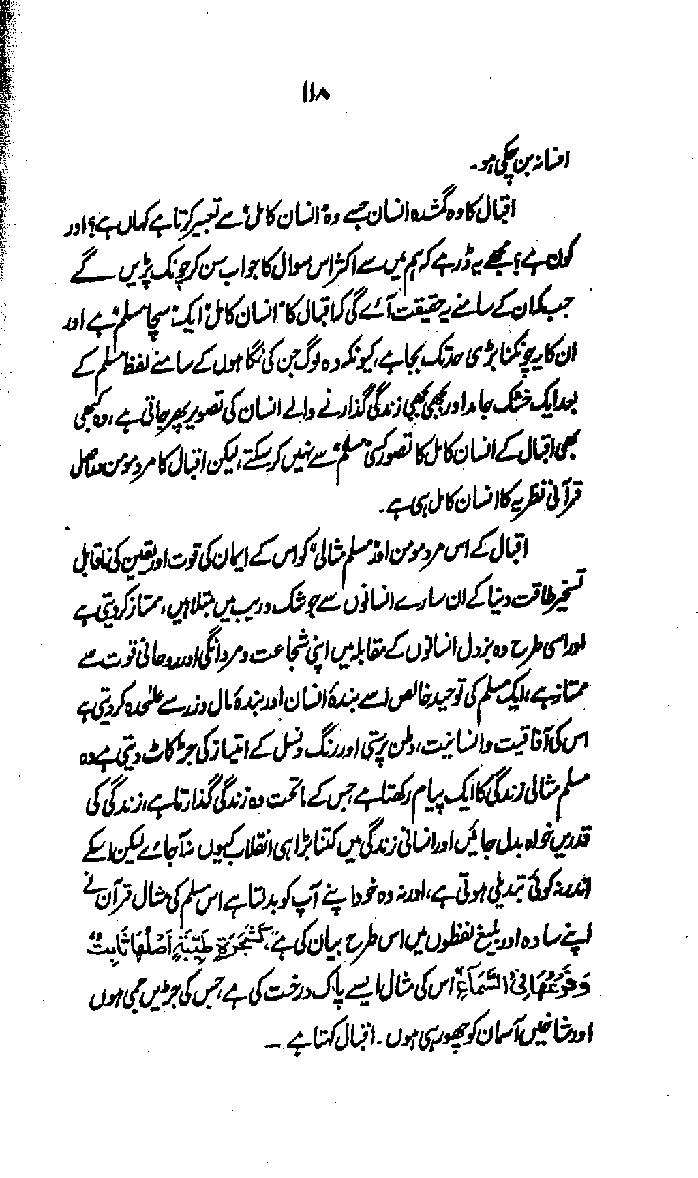 ۱۱۸
افسانہ بن چکی ہو۔
اقبال کا وہ گمشدہ انسان جسے وہ "انسان کامل" سے تعبیر کرتا ہے کہاں ہے؟ اور
کون ہے؟ مجھے یہ ڈر ہے کہ ہم میں سے اکثر اس سوال کا جواب سن کر چونک پڑیں گے
جب کہ ان کے سامنے یہ حقیقت آئے گی کہ اقبال کا "انسان کامل" ایک سچا "مسلم" ہے اور
ان کا یہ چونکنا بڑی حد تک بجا ہے، کیونکہ وہ لوگ جن کی نگاہوں کے سامنے لفظ مسلم کے
بعد ایک خشک جامد اور بجھی بجھی زندگی گذارنے والے انسان کی تصویر پھر جاتی ہے، وہ کبھی
بھی اقبال کے انسان کامل کا تصور کسی "مسلم" سے نہیں کرسکتے، لیکن اقبال کا مرد مومن دراصل
قرآنی نظریہ کا انسان کامل ہی ہے۔
اقبال کے اس مرد مومن اور "مسلم مثالی" کو اس کے ایمان کی قوت اور یقین کی ناقابل
تسخیر طاقت دنیا کے ان سارے انسانوں سے جو شک و ریب میں مبتلا ہیں، ممتاز کردیتی ہے
اور اسی طرح وہ بزدل انسانوں کے مقابلہ میں اپنی شجاعت و مردانگی اور روحانی قوت سے
ممتاز ہے، ایک مسلم کی توحید خالص اسے بندۂ انسان اور بندۂ مال و زر سے علیٰحدہ کردیتی ہے
اس کی آفاقیت و انسانیت، وطن پرستی اور رنگ و نسل کے امتیاز کی جڑ کاٹ دیتی ہے، وہ
مسلم مثالی زندگی کا ایک پیام رکھتا ہے جس کے ماتحت وہ زندگی گذارتا ہے، زندگی کی
قدریں خواہ بدل جائیں اور انسانی زندگی میں کتنا بڑا ہی انقلاب کیوں نہ آجائے لیکن اسکے
اندر نہ کوئی تبدیلی ہوتی ہے، اور نہ وہ خود اپنے آپ کو بدلتا ہے اس مسلم کی مثال قرآن نے
اپنے سادہ اور بلیغ لفظوں میں اس طرح بیان کی ہے، کَشَجَرَةٍ طَیِّبَةٍ اَصْلُهَا ثَابِتٌ
وَفَرْعُهَا فِی السَّمَآءِ" اس کی مثال ایسے پاک درخت کی ہے، جس کی جڑیں جمی ہوں
اور شاخیں آسمان کو چھو رہی ہوں۔ اقبال کہتا ہے ۔